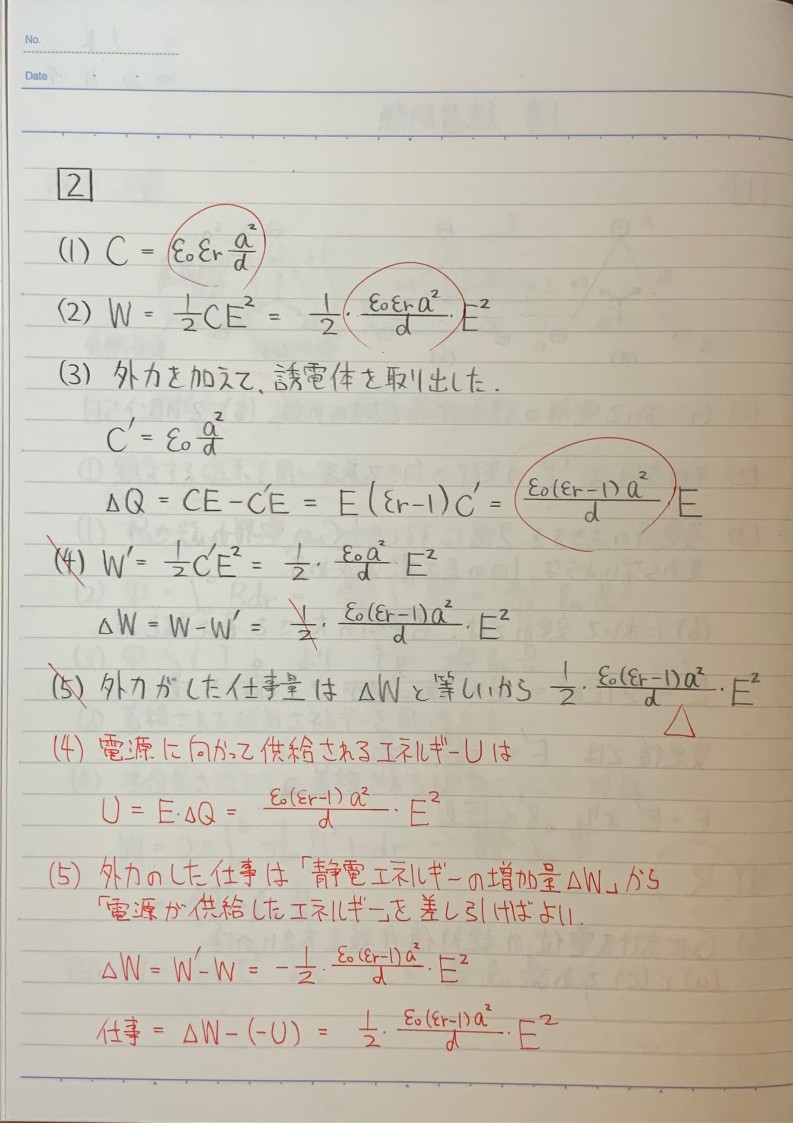 No.
Date
2
(1) C = ε₀εr a²/d
(2) W = 1/2 CE² = 1/2 · ε₀εr a²/d · E²
(3) 外力を加えて、誘電体を取り出した.
C' = ε₀ a²/d
ΔQ = CE - C'E = E(εr-1)C' = ε₀(εr-1)a²/d E
(4) W' = 1/2 C'E² = 1/2 · ε₀a²/d E²
ΔW = W - W' = 1/2 · ε₀(εr-1)a²/d · E²
(5) 外力がした仕事量は ΔWと等しいから 1/2 · ε₀(εr-1)a²/d · E²
(4) 電源に向かって供給されるエネルギーUは
U = E·ΔQ = ε₀(εr-1)a²/d · E²
(5) 外力のした仕事は「静電エネルギーの増加量ΔW」から
「電源が供給したエネルギー」を差し引けばよい.
ΔW = W' - W = - 1/2 · ε₀(εr-1)a²/d · E²
仕事 = ΔW - (-U) = 1/2 · ε₀(εr-1)a²/d · E²